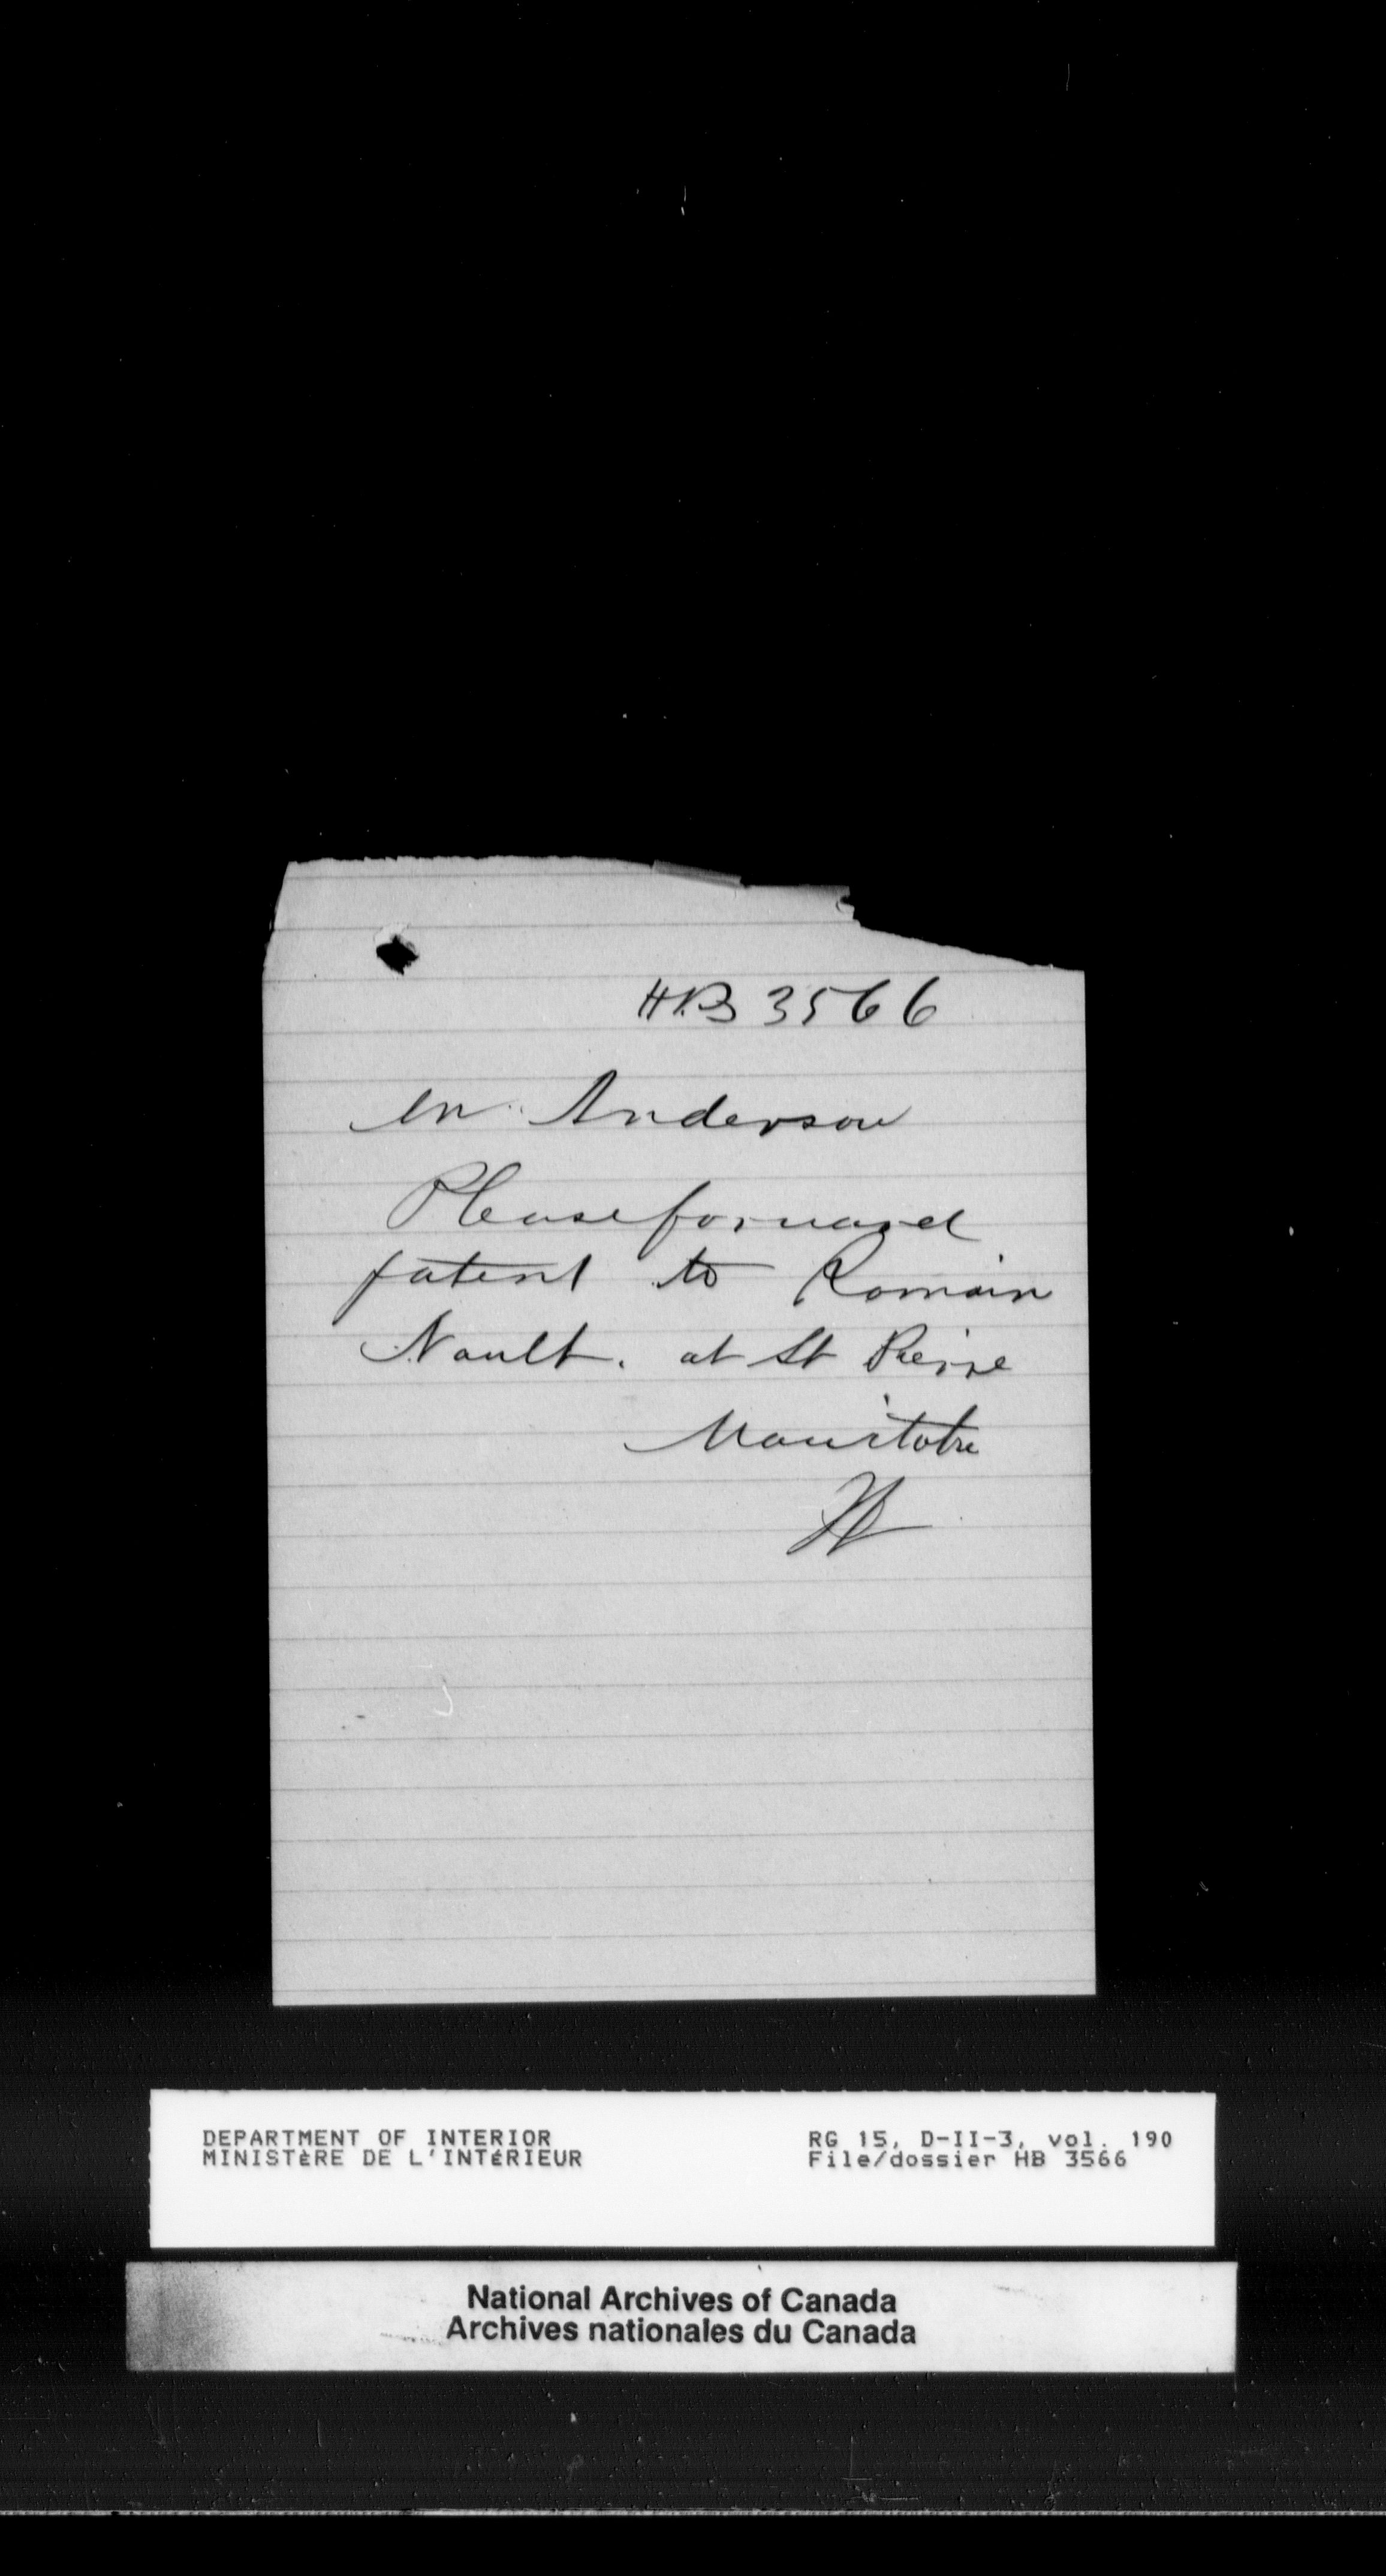 HB 3566
Mr. Anderson
Please forward
patent to Romain
Nault. at St Pierre
Manitoba
DEPARTMENT OF INTERIOR RG 15, D-II-3, vol. 190
MINISTÈRE DE L'INTÉRIEUR File/dossier HB 3566
National Archives of Canada
Archives nationales du Canada